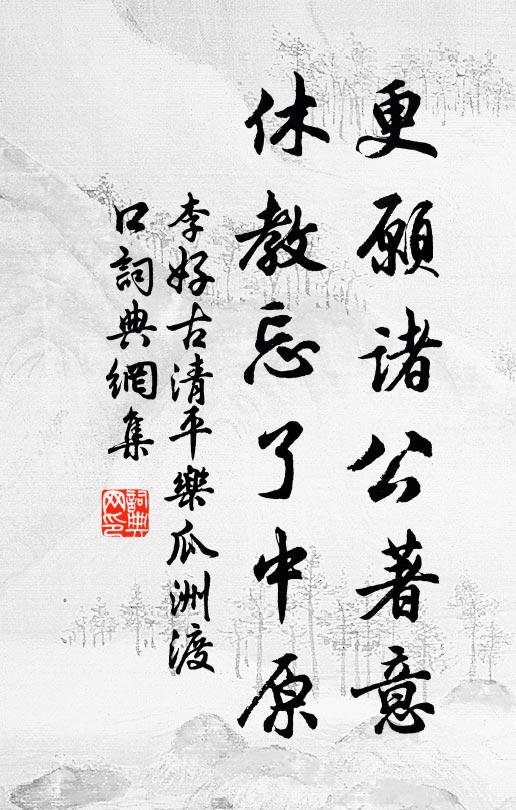 更願诸公著意
休教忘了中原
李好古清平樂瓜洲渡
口詞典網集
詞典网印